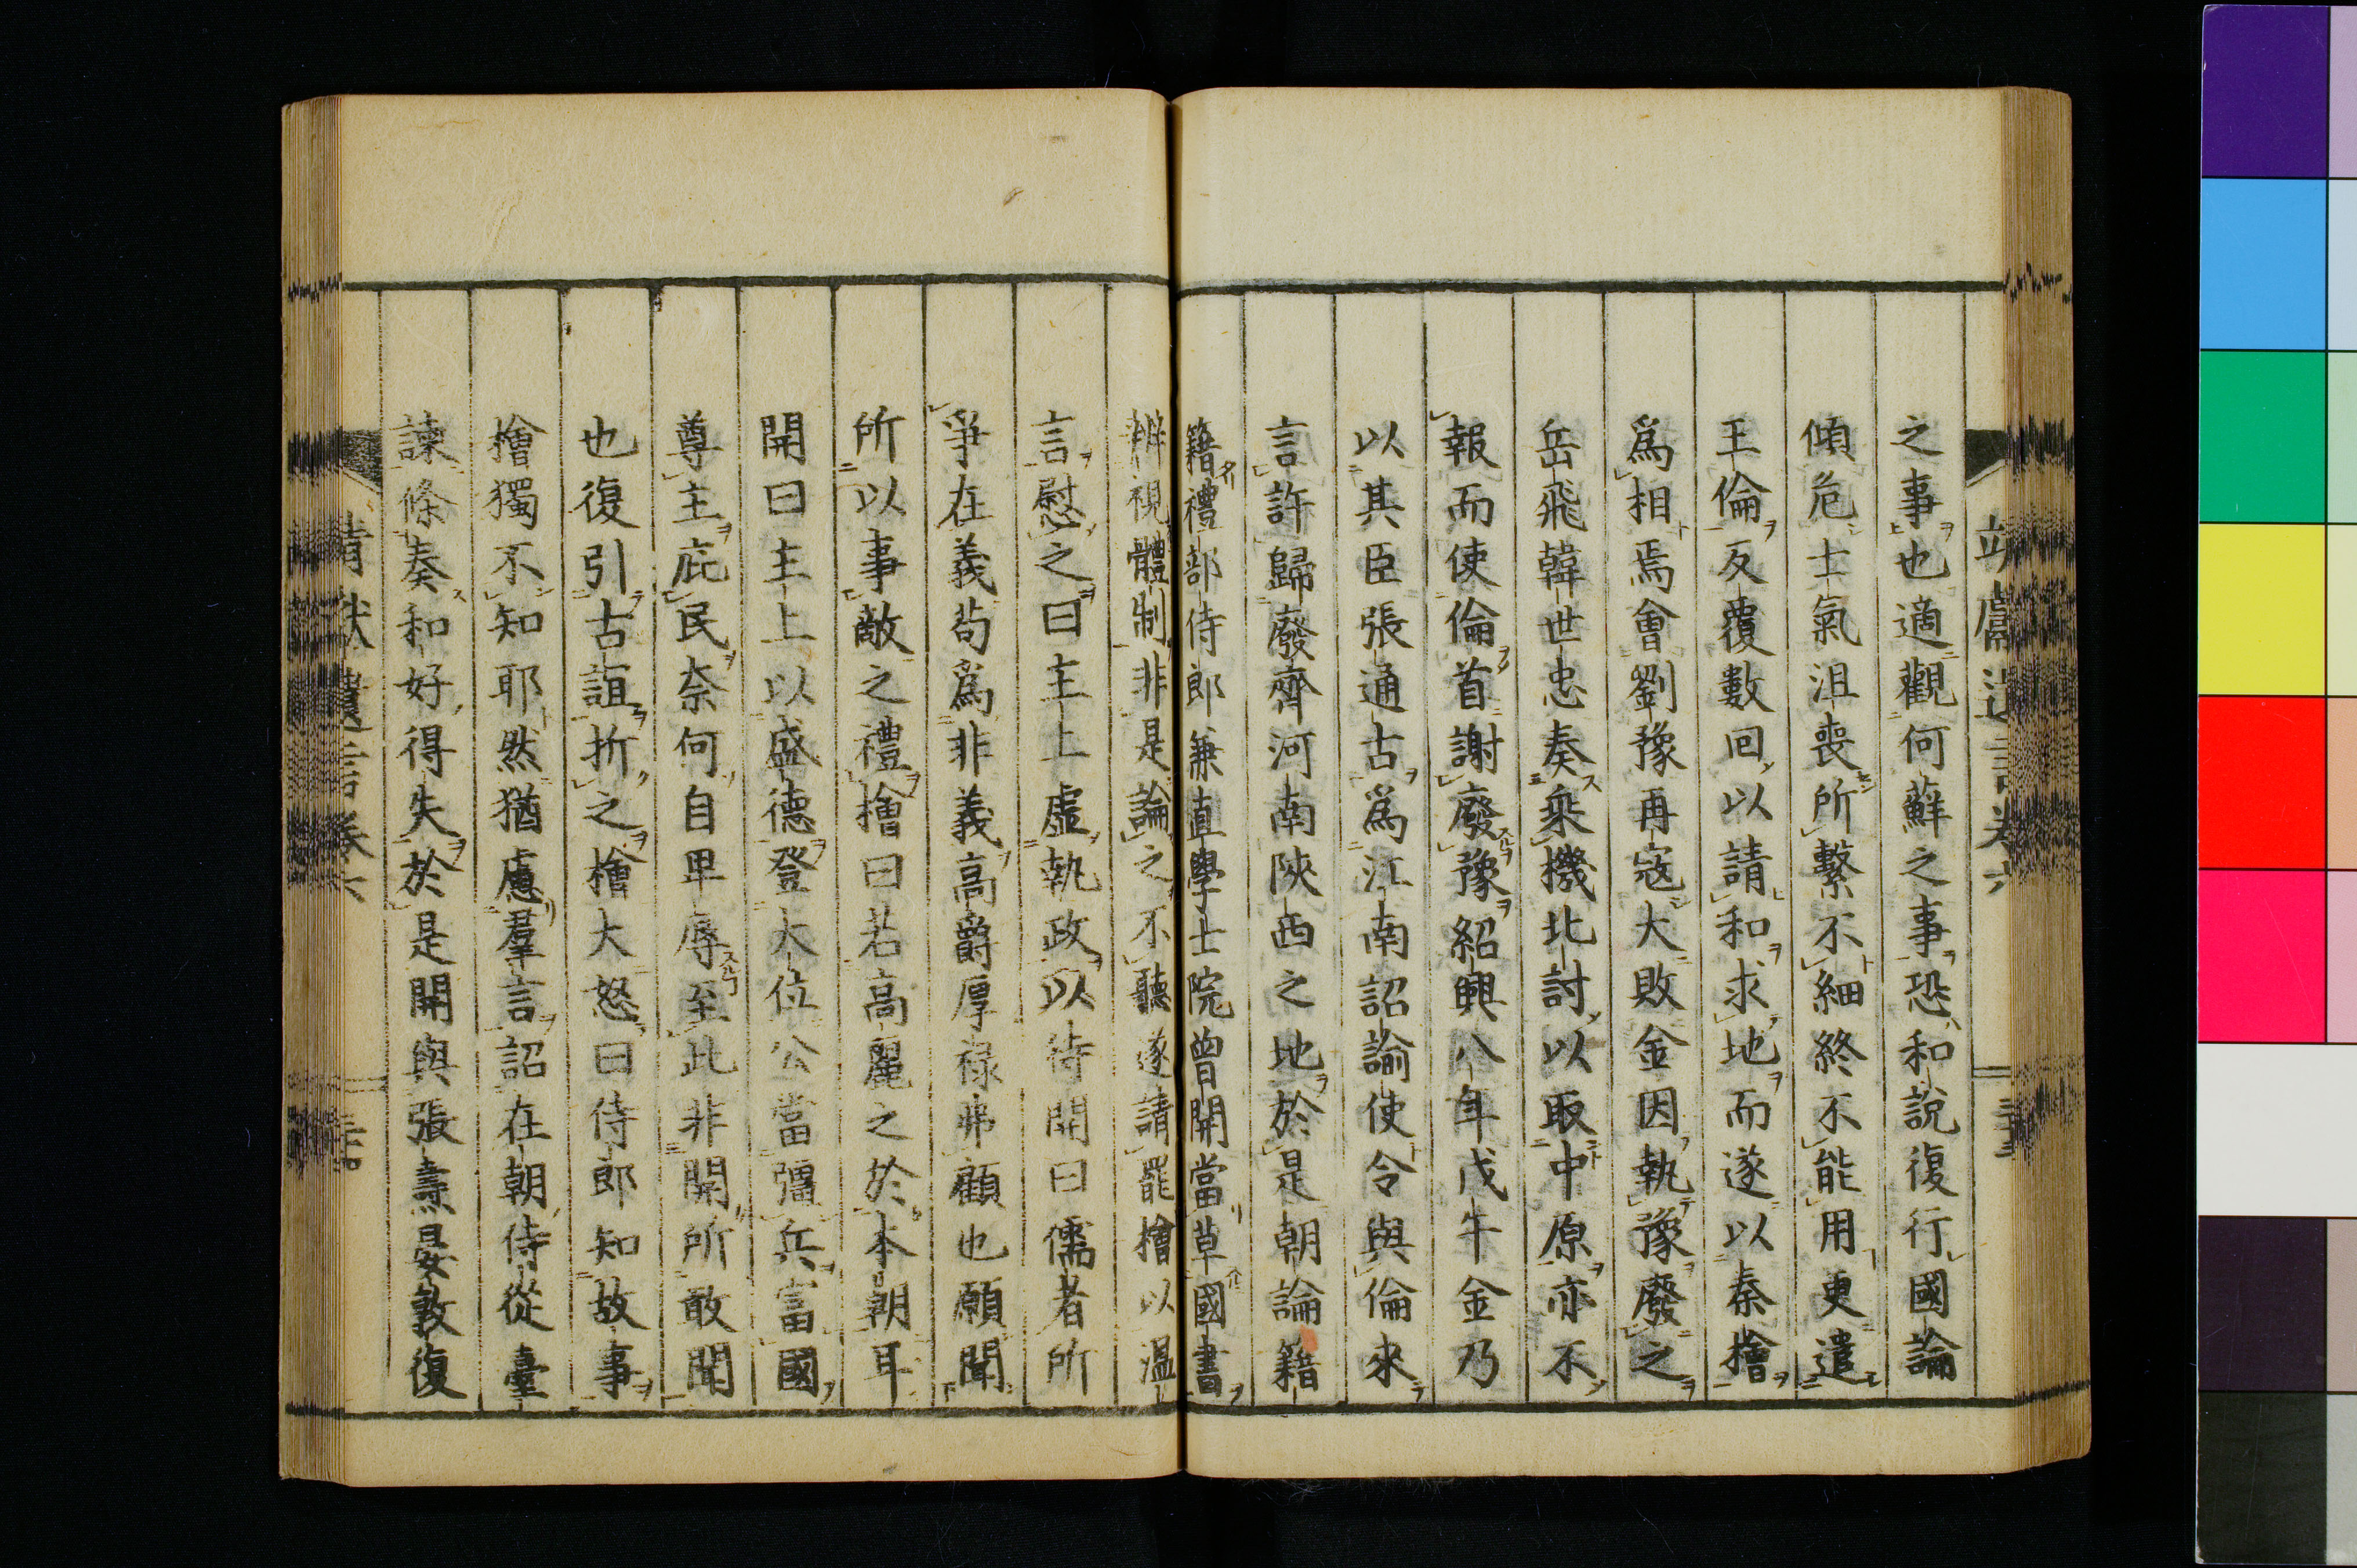 之事也適觀何蘚之事恐和說復行國論
傾危士氣沮喪所繫不細終不能用更遣
王倫反覆數回以請和求地而遂以秦檜
爲相焉會劉豫再寇大敗金因執豫廢之
岳飛韓世忠奏乘機北討以取中原亦不
報而使倫首謝廢豫紹興八年戊午金乃
以其臣張通古爲江南詔諭使令與倫來
言許歸廢齊河南陝西之地於是朝論籍
籍禮部侍郎兼直學士院曾開當草國書
辨視體制非是論之不聽遂請罷檜以溫
言慰之曰主上虛執政以待開曰儒者所
爭在義苟爲非義高爵厚祿弗顧也願聞
所以事敵之禮檜曰若高麗之於本朝耳
開曰主上以盛德登大位公當彊兵富國
尊主庇民奈何自卑辱至此非開所敢聞
也復引古誼折之檜大怒曰侍郎知故事
檜獨不知耶然猶慮羣言詔在朝侍從臺
諫條奏和好得失於是開與張燾晏敦復